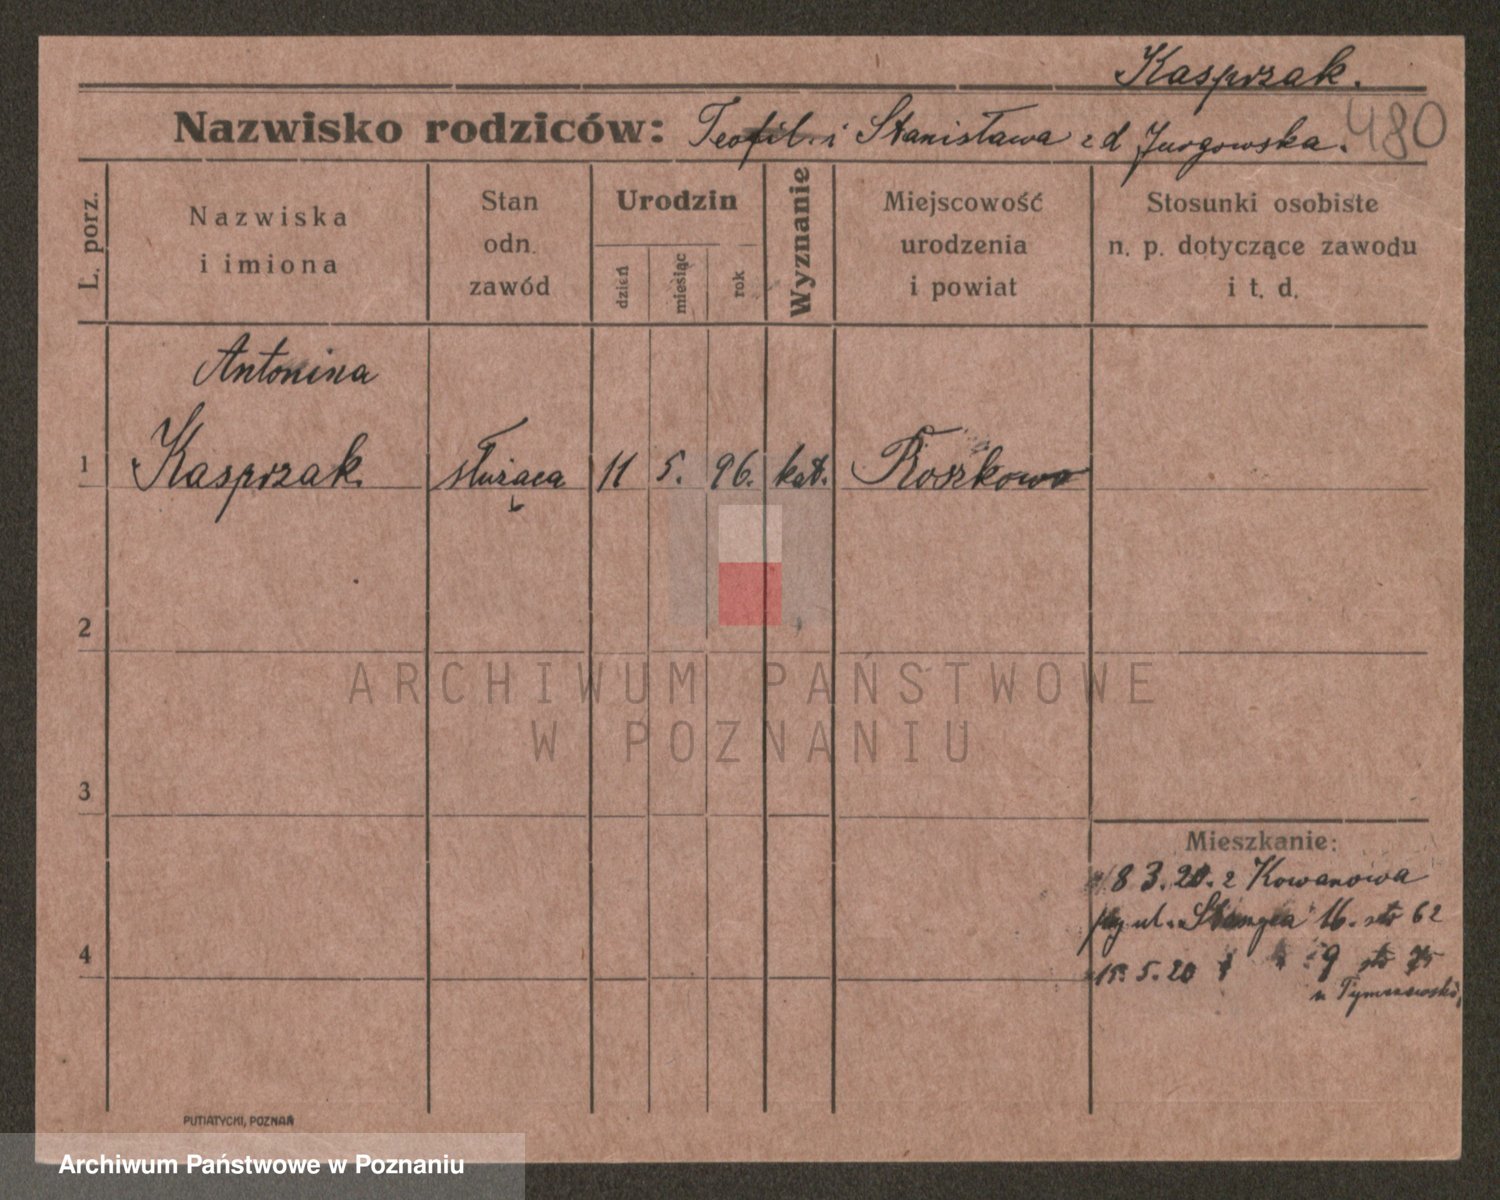 Kasprzak.
Nazwisko rodziców: Teofil i Stanisława z d Jurgowska. 480
L. porz.
Nazwiska
i imiona
Stan
odn.
zawód
Urodzin
dzień
miesiąc
rok
Wyznanie
Miejscowość
urodzenia
i powiat
Stosunki osobiste
n. p. dotyczące zawodu
i t. d.
Antonina
1 Kasprzak służąca 11 5. 96. kat. Roszkowo
2
ARCHIWUM PAŃSTWOWE
W POZNANIU
3
Mieszkanie:
8 3. 20. z Kowanowa
ul. 16. 62
4
15. 5. 20 9 75
u
PUTIATYCKI, POZNAŃ
Archiwum Państwowe w Poznaniu